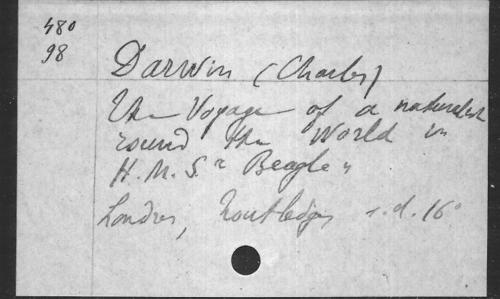 480
98
Darwin (Charles)
The Voyage of a naturalist
round the World in
H. M. S. " Beagle "
Londres, Routledge, s. d. 16°